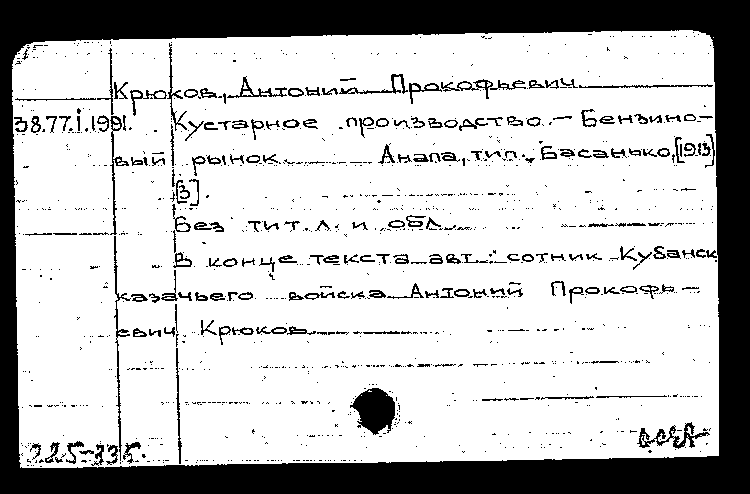 Крюков, Антоний Прокофьевич
38.77.i.1991. Кустарное производство. - Бензино-
вый рынок. Анапа, тип. Басанько, [1913]
[3].
Без тит. л. и обл.
В конце текста авт.: сотник Кубанск.
казачьего войска Антоний Прокофь-
евич Крюков
225-335.